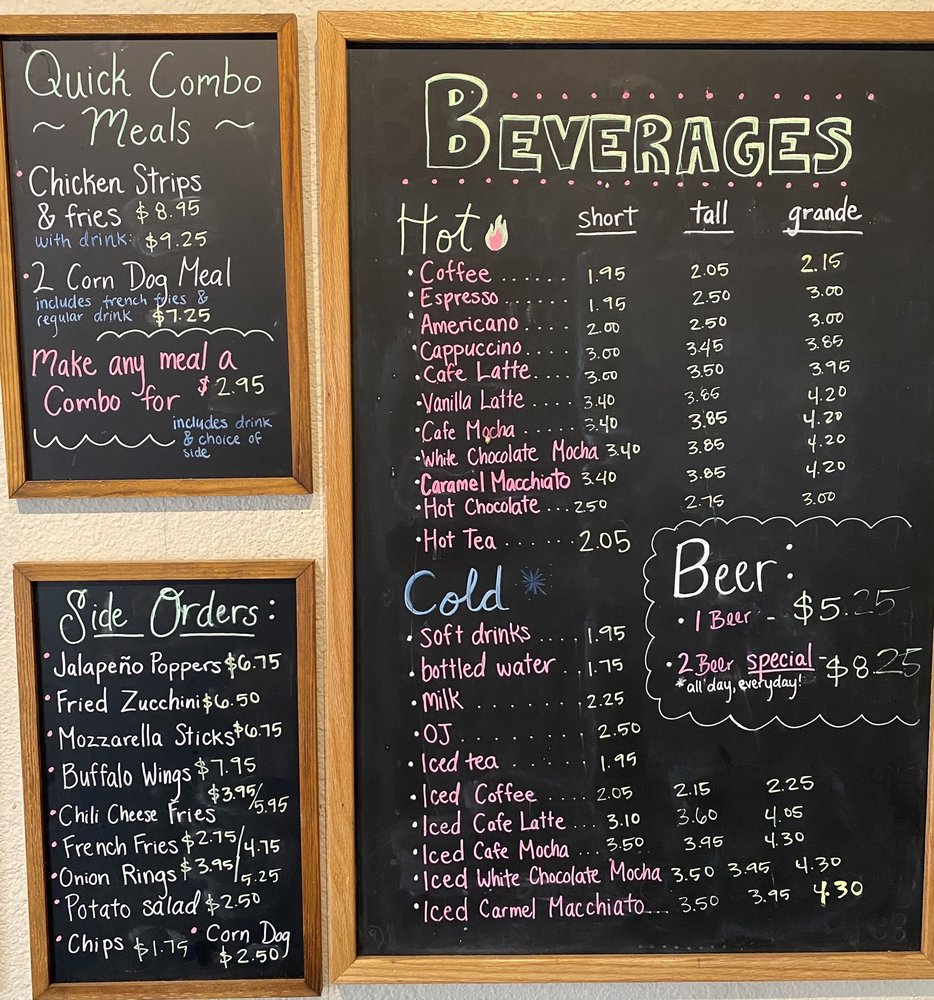 Quick Combo
~ Meals ~
Chicken Strips
& fries $8.95
with drink: $9.25
2 Corn Dog Meal
includes french fries &
regular drink $7.25
Make any meal a
Combo for $2.95
includes drink
& choice of
side
Side Orders:
Jalapeño Poppers $6.75
Fried Zucchini $6.50
Mozzarella Sticks $6.75
Buffalo Wings $7.95
Chili Cheese Fries $3.95/5.95
French Fries $2.75/4.75
Onion Rings $3.95/5.25
Potato salad $2.50
Chips $1.75 • Corn Dog
$2.50
BEVERAGES
Hot short tall grande
• Coffee ...... 1.95 2.05 2.15
• Espresso ...... 1.95 2.50 3.00
• Americano .... 2.00 2.50 3.00
• Cappuccino .... 3.00 3.45 3.85
• Cafe Latte .... 3.00 3.50 3.95
• Vanilla Latte ... 3.40 3.85 4.20
• Cafe Mocha ..... 3.40 3.85 4.20
• White Chocolate Mocha 3.40 3.85 4.20
• Caramel Macchiato 3.40 3.85 4.20
• Hot Chocolate ... 250 2.75 3.00
• Hot Tea ..... 2.05
Cold
• soft drinks .... 1.95
• bottled water .. 1.75
• Milk ........ 2.25
• OJ ........ 2.50
• Iced tea ...... 1.95
• Iced Coffee ..... 2.05 2.15 2.25
• Iced Cafe Latte ... 3.10 3.60 4.05
• Iced Cafe Mocha ... 3.50 3.95 4.30
• Iced White Chocolate Mocha 3.50 3.95 4.30
• Iced Carmel Macchiato.... 3.50 3.95 4.30
Beer:
• 1 Beer - $5.25
• 2 Beer special - $8.25
*all day, everyday!